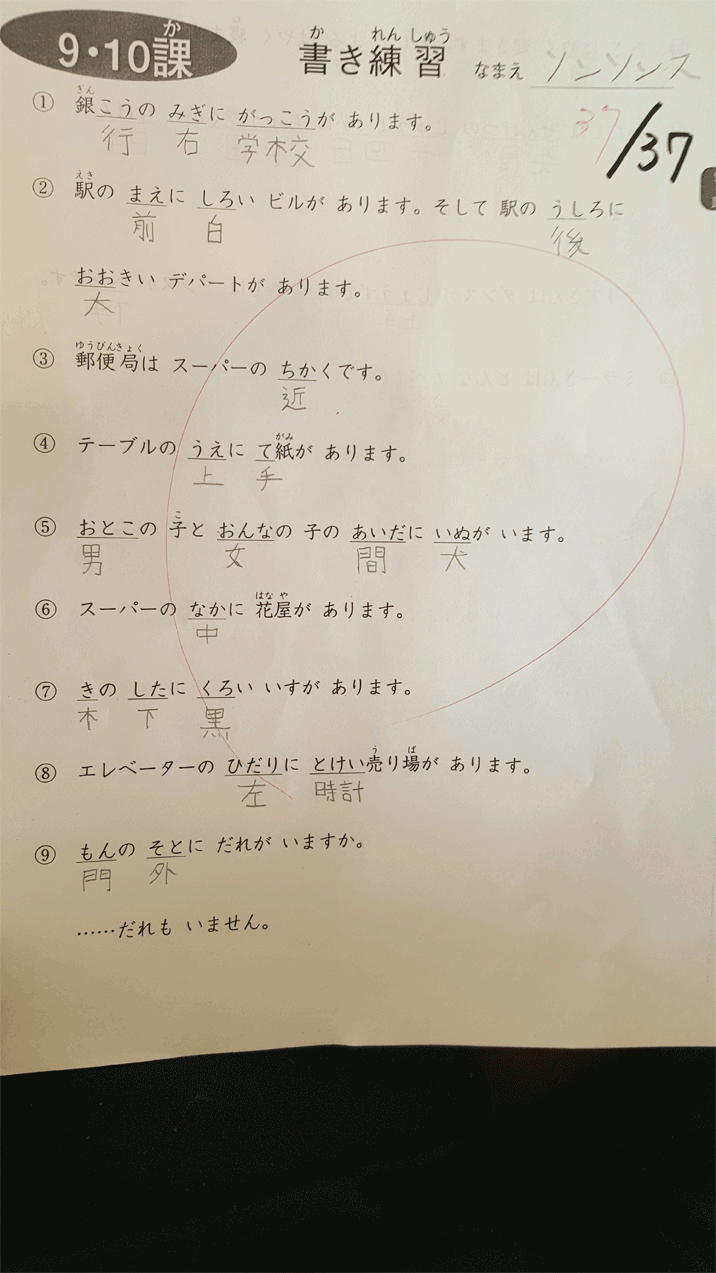 9・10課
か
書き練習
か れん しゅう
なまえ ソンソンス
37/37
① 銀こうの みぎに がっこうが あります。
ぎん
行 右 学校
② 駅の まえに しろい ビルが あります。そして 駅の うしろに
えき
前 白 後
おおきい デパートが あります。
大
③ 郵便局は スーパーの ちかくです。
ゆうびんきょく
近
④ テーブルの うえに て紙が あります。
がみ
上 手
⑤ おとこの 子と おんなの 子の あいだに いぬが います。
こ
男 女 間 犬
⑥ スーパーの なかに 花屋が あります。
はな や
中
⑦ きの したに くろい いすが あります。
木 下 黒
⑧ エレベーターの ひだりに とけい売り場が あります。
う ば
左 時計
⑨ もんの そとに だれが いますか。
門 外
……だれも いません。